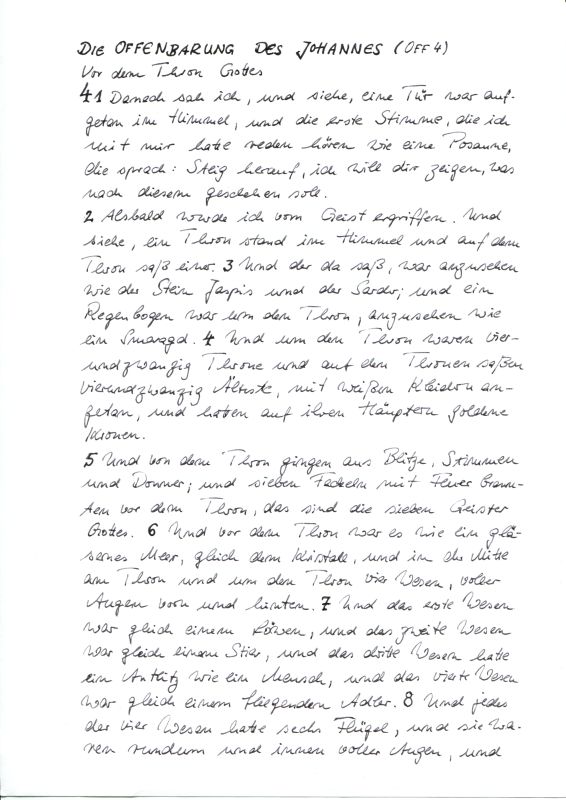 DIE OFFENBARUNG DES JOHANNES (OFF 4)
Vor dem Thron Gottes
41 Danach sah ich, und siehe, eine Tür war auf-
getan im Himmel, und die erste Stimme, die ich
mit mir hatte reden hören wie eine Posaune,
die sprach: Steig herauf, ich will dir zeigen, was
nach diesem geschehen soll.
2 Alsbald wurde ich vom Geist ergriffen. Und
siehe, ein Thron stand im Himmel und auf dem
Thron saß einer. 3 Und der da saß, war anzusehen
wie der Stein Jaspis und der Sarder; und ein
Regenbogen war um den Thron, anzusehen wie
ein Smaragd. 4 Und um den Thron waren vier-
undzwanzig Throne und auf den Thronen saßen
vierundzwanzig Älteste, mit weißen Kleidern an-
getan, und hatten auf ihren Häuptern goldene
Kronen.
5 Und von dem Thron gingen aus Blitze, Stimmen
und Donner; und sieben Fackeln mit Feuer brann-
ten vor dem Thron, das sind die sieben Geister
Gottes. 6 Und vor dem Thron war es wie ein glä-
sernes Meer, gleich dem Kristall, und in der Mitte
am Thron und um den Thron vier Wesen, voller
Augen vorn und hinten. 7 Und das erste Wesen
war gleich einem Löwen, und das zweite Wesen
war gleich einem Stier, und das dritte Wesen hatte
ein Antlitz wie ein Mensch, und das vierte Wesen
war gleich einem fliegenden Adler. 8 Und jedes
der vier Wesen hatte sechs Flügel, und sie wa-
ren rundum und innen voller Augen, und